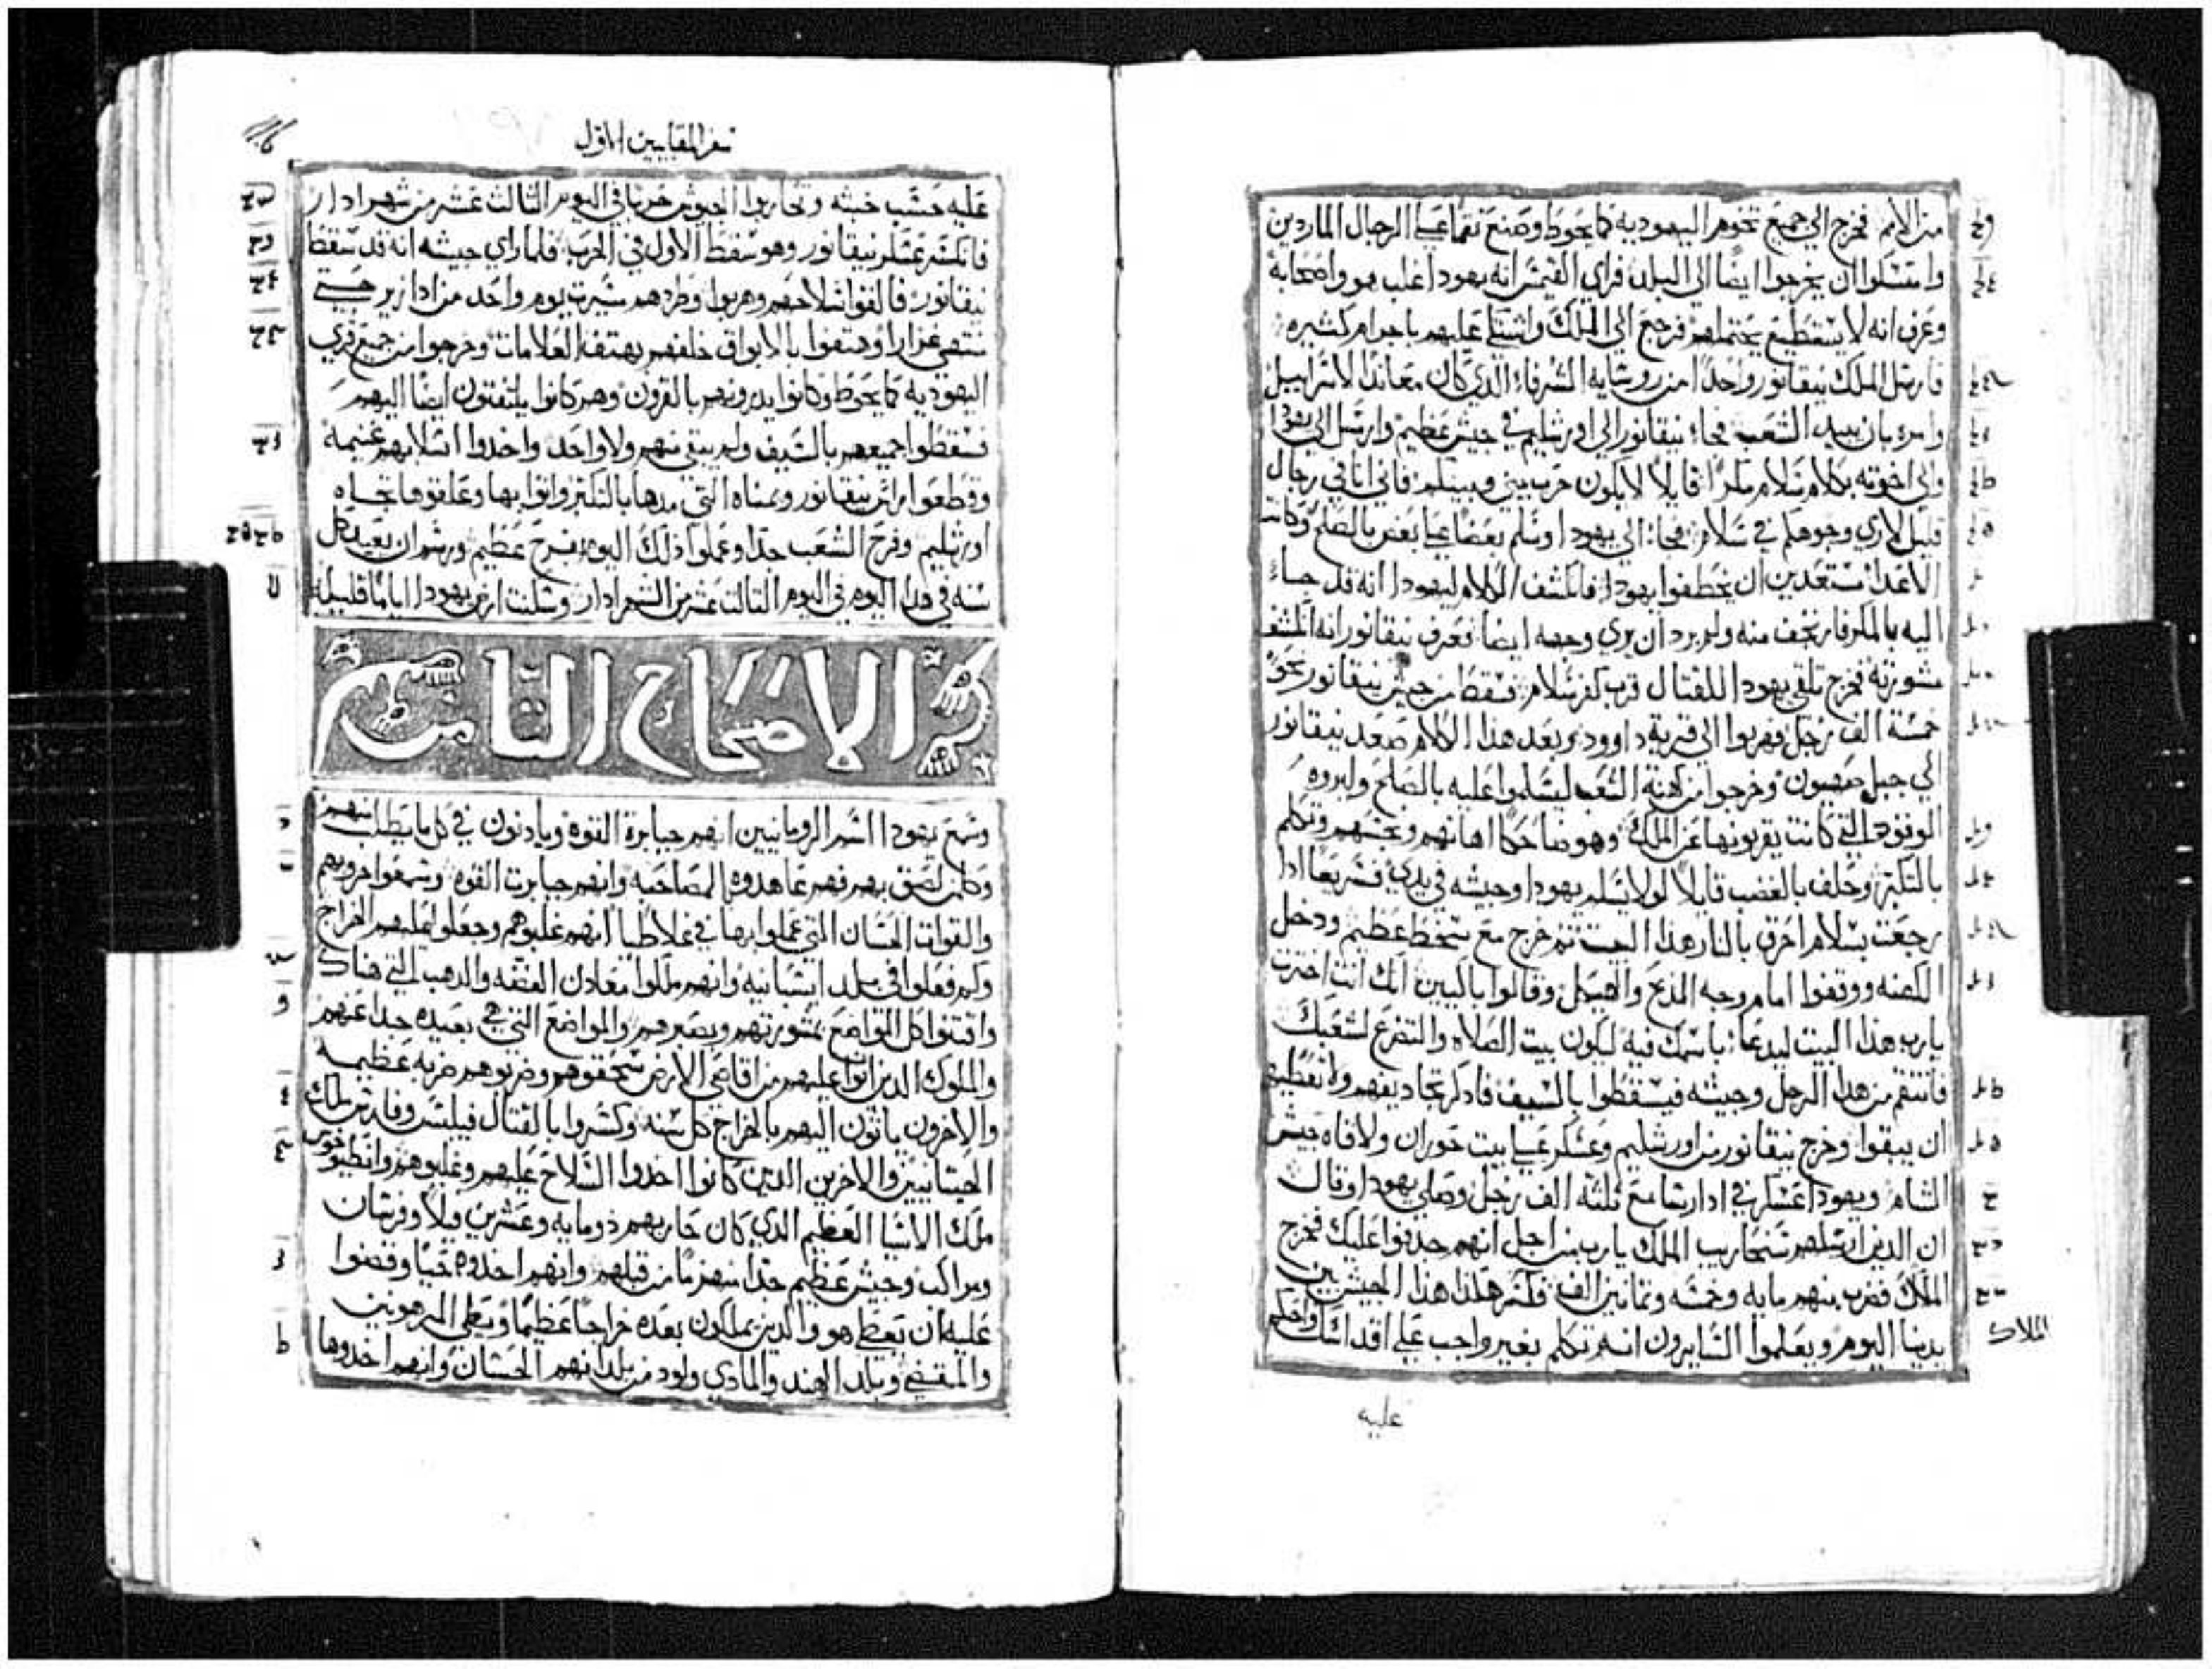 من الأمم فخرج الي جميع تخوم اليهوديه كما يحوط وصنع نقما علي الرجال الماردين
وامتسكوا ان يخرجوا ايضا الي البلد فراي القيمس انه يهودا غلب هو واصحابه
وعرف انه لا يستطيع يحتملهم فرجع الي الملك واشتكي عليهم باجرام كثيره
فارسل الملك نيقانور واحدا من روسايه الشرفاء الذي كان معاندا لاسراييل
وامره بان يبيد الشعب فجاء نيقانور الي اورشليم في جيش عظيم وارسل الي يهودا
والي اخوته بكلام سلام بمكر قايلا لا يكون حرب بيني وبينكم فاني اتي في رجال
قليل لاري وجوهكم في سلام فجاء الي يهودا وسلم بعضا علي بعض بالصلح وكانت
الاعدا مستعدين ان يخطفوا يهودا فانكشف الكلام ليهودا انه قد جاء
اليه بالمكر فارتجف منه ولم يرد ان يري وجهه ايضا فعرف نيقانور انه انكشف
مشورته فخرج تلقي يهودا للقتال قرب كفر سلام فسقط من جيش نيقانور نحو
خمسة الف رجل فهربوا الي قرية داوود وبعد هذا الكلام صعد نيقانور
الي جبل صهيون وخرجوا من كهنة الشعب ليسلموا عليه بالصلح وليروه
الوقود التي كانت يقربونها عن الملك وهو ضاحكا اهانهم ونجسهم وتكلم
بالتكبر وحلف بالغضب قايلا لولا يسلم يهودا وجيشه في يدي فسريعا اذا
رجعت بسلام احرق بالنار هذا البيت ثم خرج مع سخط عظيم ودخل
الكهنه ووقفوا امام وجه المذبح والهيكل وقالوا باكيين انك انت اخترت
يا رب هذا البيت ليدعا باسمك فيه ليكون بيت الصلاه والتضرع لشعبك
فانتقم من هذا الرجل وجيشه فيسقطوا بالسيف فاذكر تجاديفهم ولا تعطيهم
ان يبقوا وخرج نيقانور من اورشليم وعسكر علي بيت حوران ولاقاه جيش
الشام ويهودا عسكر في ادارسا مع ثلثه الف رجل وصلي يهودا وقال
ان الذين ارسلهم سنحاريب الملك يا رب من اجل انهم جدفوا عليك فخرج
الملاك فضرب منهم مايه وخمسه وثمانين الف فكسر هكذا هذا الجيش بين
يدينا اليوم ويعلموا السايرون انه تكلم بغير واجب علي اقداسك واحكم
الملاك
عليه
سفر المقابيين الاول
عليه حسب خبثه وتحاربوا الجيوش حربا في اليوم الثالث عشر من شهر ادار
فانكسر عسكر نيقانور وهو سقط الاول في الحرب فلما راي جيشه انه قد سقط
نيقانور فالقوا سلاحهم وهربوا وطردهم مسيرت يوم واحد من ادازير حتي
تنتهي غزارا وهتفوا بالابواق خلفهم بهتف العلامات وخرجوا من جميع قري
اليهوديه كما يحوط وكانوا يدرونهم بالقرون وهم كانوا يلتفتون ايضا اليهم
فسقطوا جميعهم بالسيف ولم يبقي منهم ولا واحد واخدوا اسلابهم غنيمه
وقطعوا راس نيقانور ويمناه التي مدها بالتكبر واتوا بها وعلقوها تجاه
اورشليم وفرح الشعب جدا وعملوا ذلك اليوم بفرح عظيم ورسم ان يعيد كل
سنه في هذا اليوم في اليوم الثالث عشر من الشهر ادار وسكنت ارض يهودا اياما قليله
الاصحاح الثامن
وسمع يهودا اسم الرومانيين انهم جبابرة القوة ويادنون في كل ما يطلب منهم
وكلمن لصق بهم فهم عاهدوه المصاحبه وانهم جبابرت القوه وسمعوا حروبهم
والقوات الحسان التي عملوا بها في غلاطيا انهم غلبوهم وجعلوا عليهم الخراج
وكم فعلوا في بلد اسبانيه وانهم ملكوا معادن الفضه والدهب التي هناك
واقتنوا كل المواضع بمشورتهم وبصبرهم والمواضع التي هي بعيده جدا عنهم
والملوك الدين اتوا عليهم من اقاصي الارض سحقوهم وضربوهم ضربه عظيمه
والاخرون ياتون اليهم بالخراج كل سنه وكسروا بالقتال فيلبس وفارس ملك
الحيتانيين والاخرين الدين كانوا اخدوا السلاح عليهم وغلبوهم وانطيوخوس
ملك الاسيا العظيم الدي كان حاربهم ذو مايه وعشرين فيلا وفرسان
ومراكب وجيش عظيم جدا انهزم من قبلهم وانهم اخدوه حيا وقضوا
عليه ان يعطي هو والدين يملكون بعده خراجا عظيما ويعطي المرهونين
والمقتضي وبلد الهند والمادي ولود من بلدانهم الحسان وانهم اخدوها